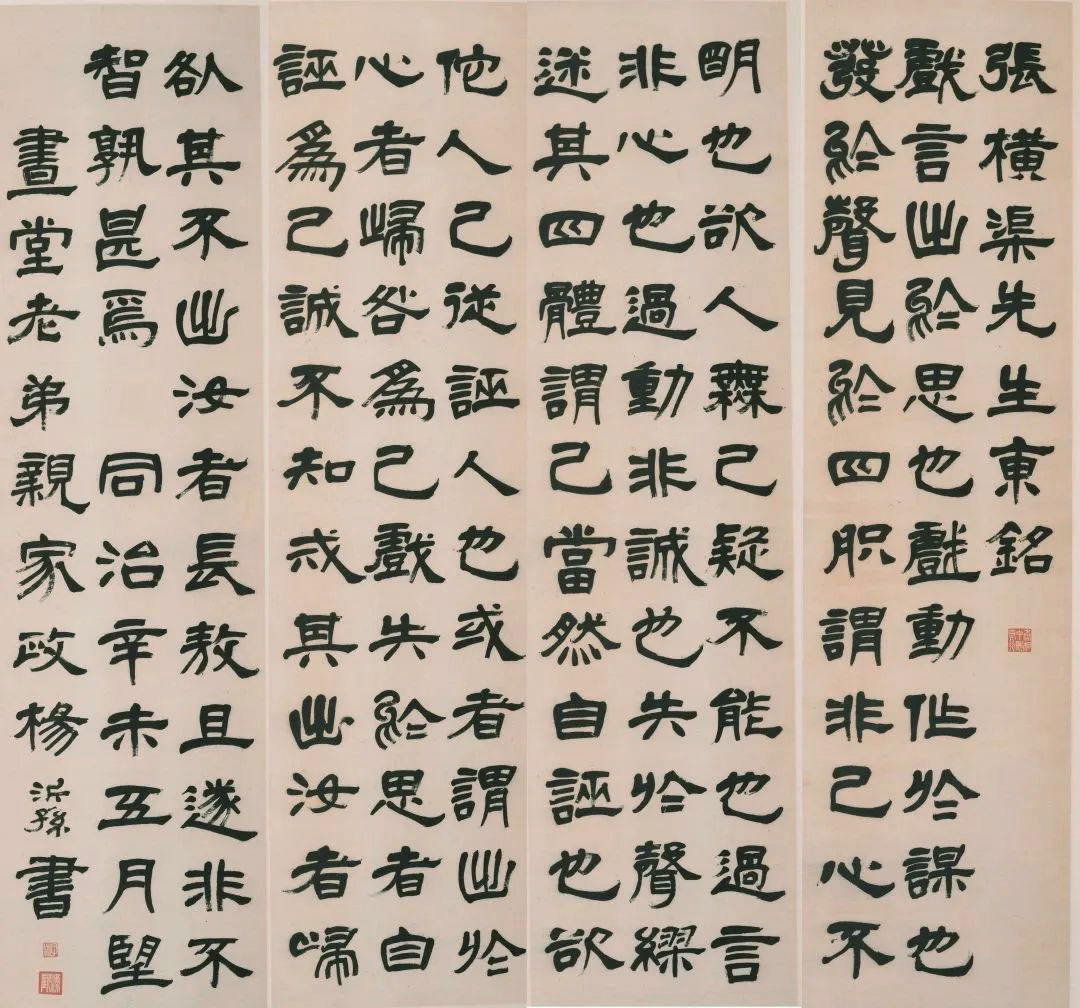 張橫渠先生東銘
戲言出於思也戲動作於謀也
發於聲見於四肢謂非己心不
明也欲人無己疑不能也過言
非心也過動非誠也失於聲繆
迷其四體謂己當然自誣也欲
他人己從誣人也或者謂出於
心者歸咎爲己戲失於思者自
誣爲己誠不知戒其出汝者歸
咎其不出汝者長敖且遂非不
智孰甚焉 同治辛未五月望
晝堂老弟親家政楊沂孫書